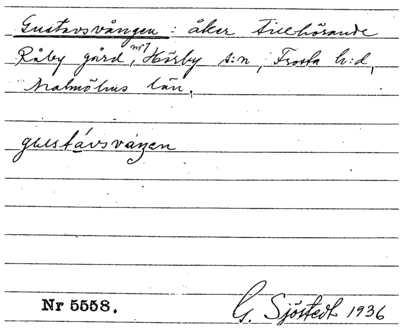 Gustavsvången: åker tillhörande
Råby gård nr 7, Hörby s:n, Frosta h:d,
Malmöhus län.
gustávsvaŋen
Nr 5558.
G. Sjöstedt 1936